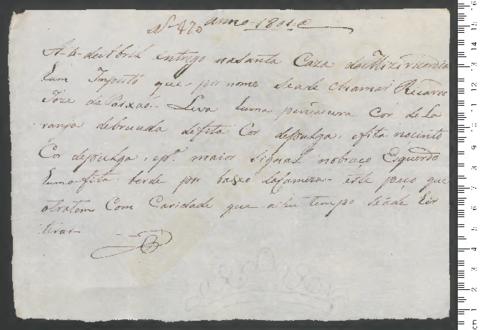 Nº 470 anno 1801
A 4 de Abril entrego na Santa Caza da Mizericordia
hum Inginto que por nome se ade chamar Ricardo
Joze da Paixao. Leva huma
ranja debruada de fita Cor de pulga, e fita no cinto
Cor de pulga, e p.ª maior signal no braço Esquerdo
huma fita berde por baxo da Cameza este peço que
o tratem Com Caridade que a seu tempo se ade hir
tirar